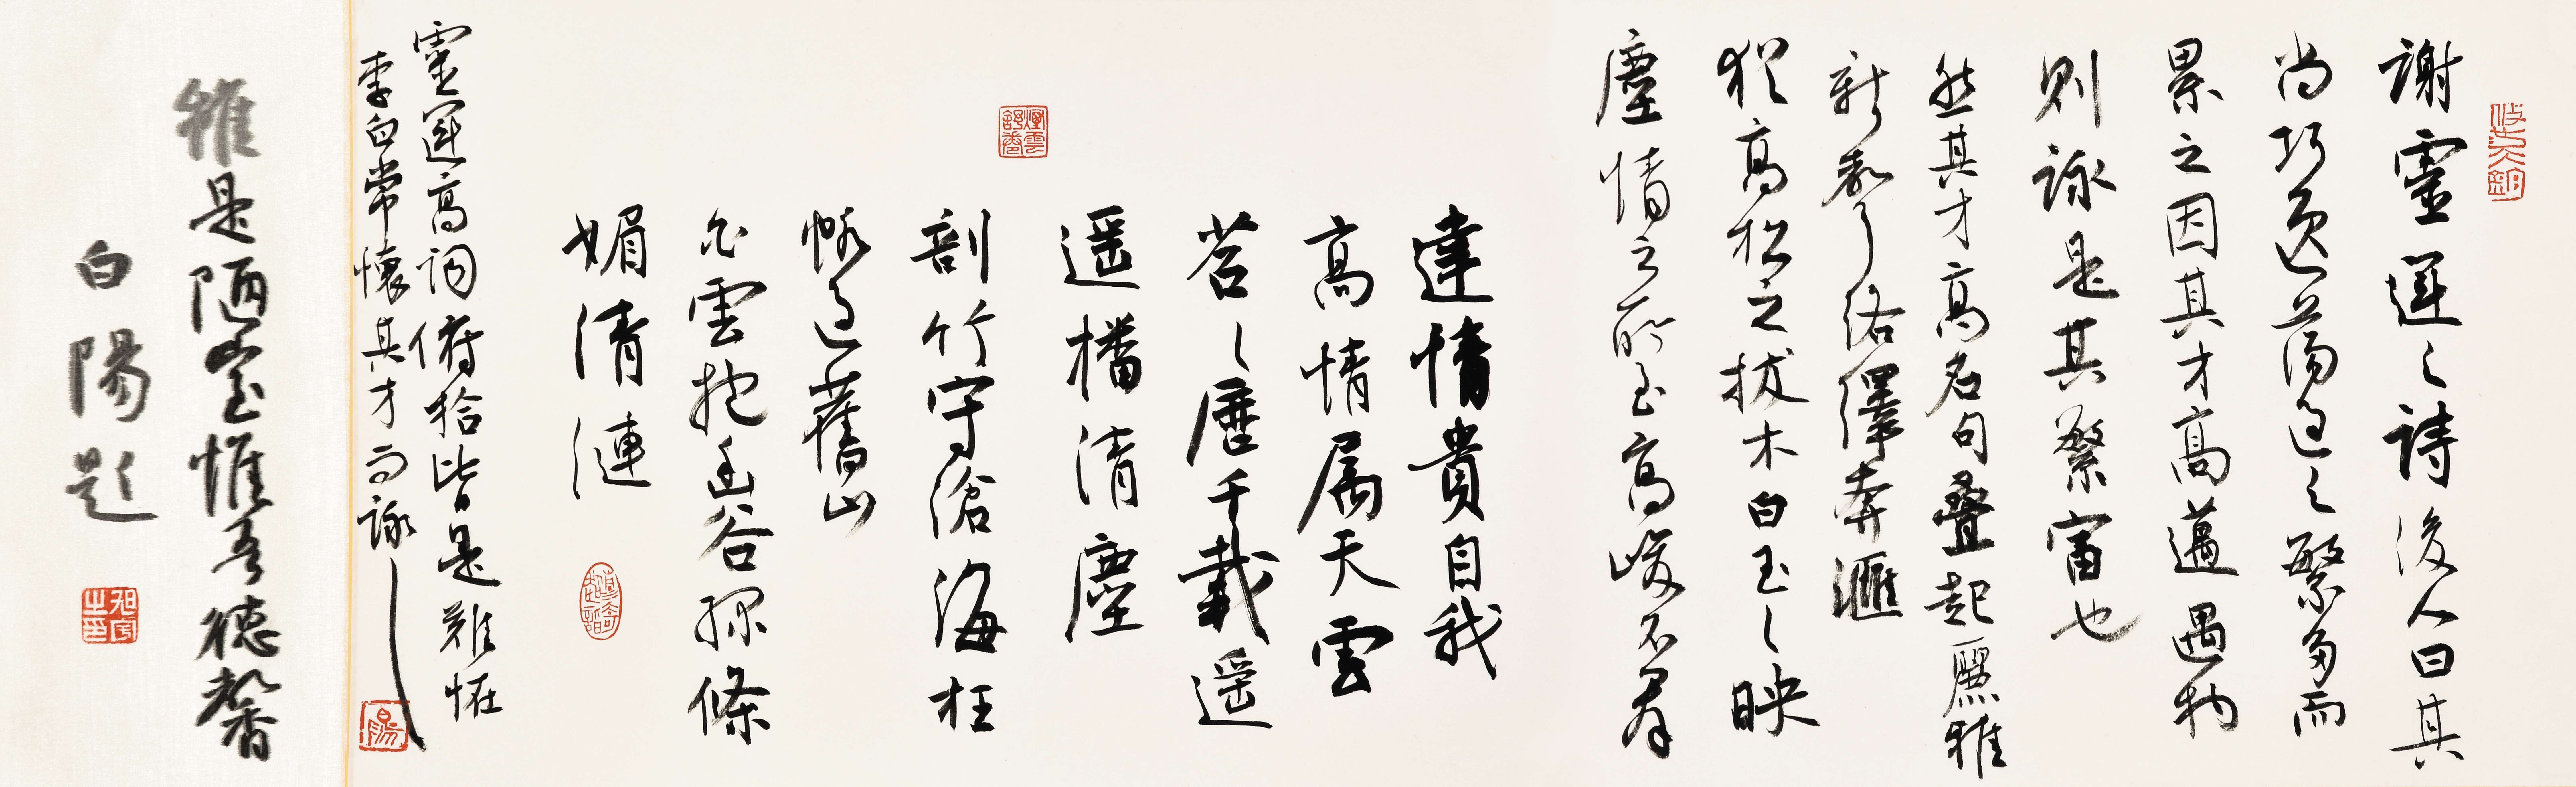 謝靈運之詩後人曰其
尚巧逸蕩過之繁多而
累之因其才高邁遇物
則詠是其繁富也
然其才高名句疊起麗雅
新聲了洛繹奔滙
猶高松之拔木白玉之映
塵情之所至高峻不羣
達情貴自我
高情屬天雲
苕々歷千載遥
遥播清塵
剖竹守滄海枉
帆過舊山
白雲抱幽谷緑篠
媚清漣
靈運高詞俯拾皆是難怪
李白常懷其才而詠
雅是陋室惟吾德馨
白陽題